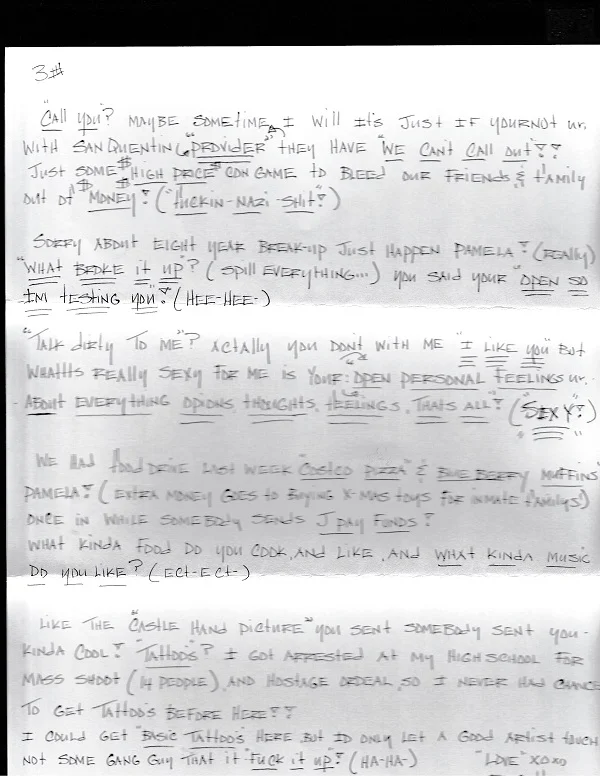 3#
"Call you"? MAYBE SOMETIME, I Will It's Just IF YOURNOT ur.
WITH SAN QUENTIN "PROVIDER" THEY HAVE "WE CAN'T CALL Out"!!
Just SOME $HIGH PRICE$ CON GAME to BLEED OUR FRIENDS & FAMILY
Out OF $MONEY! ("FUCKIN-NAZI-SHIT!")
SORRY ABOUT EIGHT YEAR BREAK-UP Just HAPPEN PAMELA! (REALLY)
"WHAT BROKE it UP"? (SPILL EVERYTHING...) YOU SAID YOUR "OPEN SO
IM TESTING YOU"! (HEE-HEE-)
"TALK dirty TO ME"? ACtAlly you DON't WITH ME "I LIKE you" But
WHAttS REAlly SEXy FOR ME is YOUR: OPEN PERSONAL FEELINGS ur.
ABOUT EVERYTHING OPIONS, tHOUGHTS, FEELINGS, THATS ALL! ("SEXY"!)
WE HAD FOOD DRIVE LAST WEEK "COSTCO PIZZA" & BLUE BERRY MUFFINS
PAMELA! (EXTRA MONEY GOES to BUYING X-MAS toys FOR INMATE FAMILYS)
ONCE IN WHILE SOMEBODY SENDS J PAY FUNDS!
WHAT KINDA FOOD DO you COOK, AND LIKE, AND WHAT KINDA MUSIC
DO YOU LIKE? (ECT-ECT-)
LIKE THE "CASTLE HAND PICTURE" YOU SENT SOMEBODY SENT YOU-
KINDA COOL! "TATTOOS"? I GOT ARRESTED AT MY HIGHSCHOOL FOR
MASS SHOOT (14 PEOPLE), AND HOSTAGE ORDEAL, SO I NEVER HAD CHANCE
TO GET TATTOOS BEFORE HERE!!
I COULD GET "BASIC TATTOOS HERE But ID ONLY LET A GOOD ARTIST TOUCH
NOT SOME GANG GUY THAT it "FUCK it UP"! (HA-HA-) "LOVE" XOXO